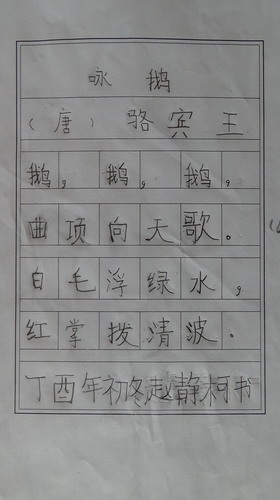 咏鹅
(唐)骆宾王
鹅,鹅,鹅,
曲项向天歌。
白毛浮绿水,
红掌拨清波.
丁酉年初冬赵静柯书